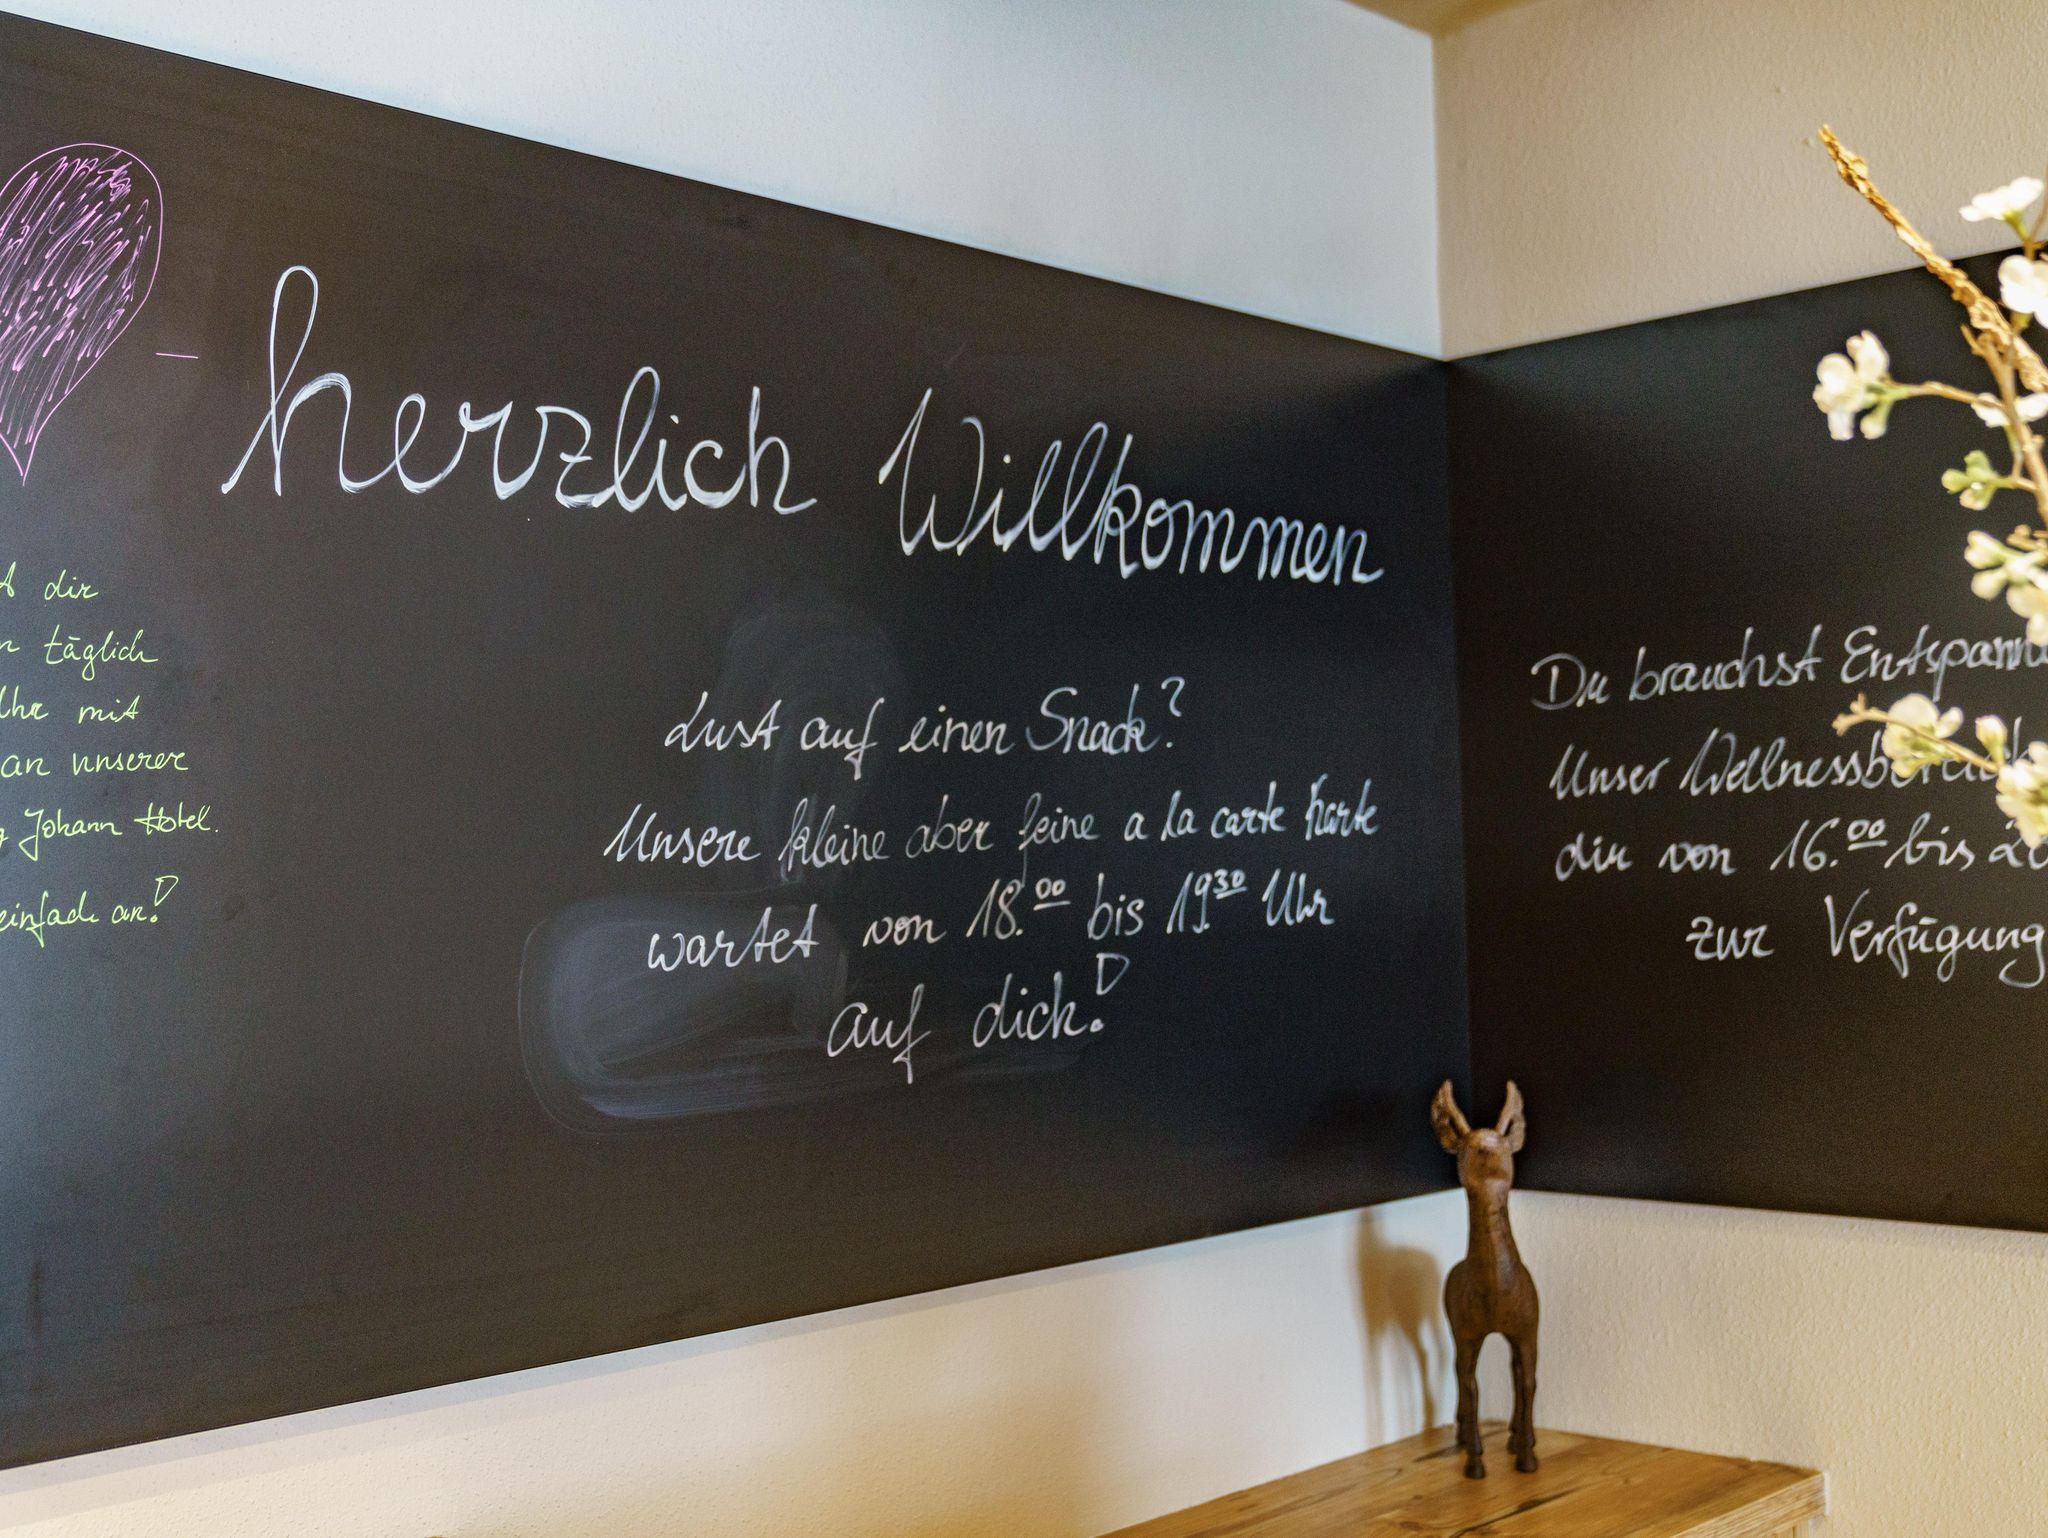 herzlich Willkommen
dir
täglich
Uhr mit
an unserer
Johann Hotel.
einfach an!
Lust auf einen Snack?
Unsere kleine aber feine a la carte karte
wartet von 18.00 bis 19.30 Uhr
auf dich!
Du brauchst Entspannu
Unser Wellnessbereich
dir von 16.00 bis 20
zur Verfügung